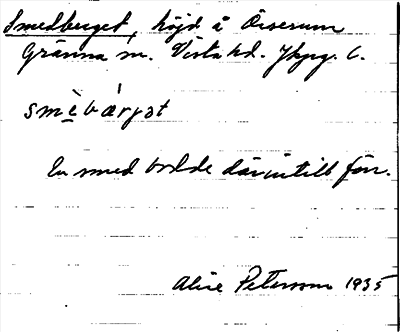 Smedberget, höjd å Örserum
Gränna sn. Vista hd. Jkpg. l.
smèbárjət
En smed bodde därintill förr.
Alice Petersson 1935